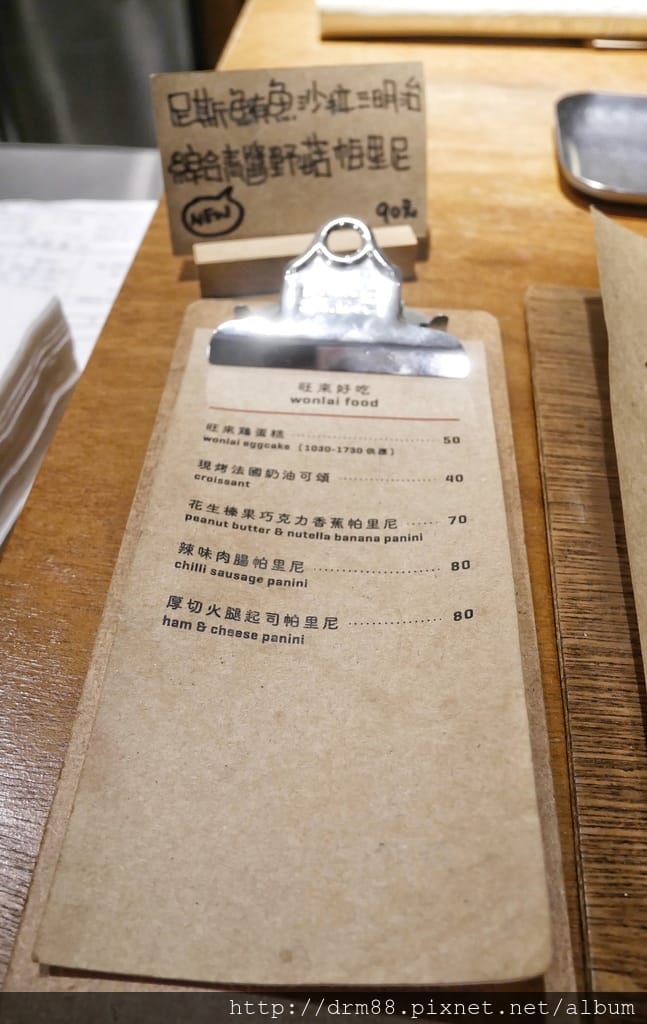 尼斯鮪魚沙拉三明治
綜合青醬野菇帕里尼
NEW
90元
旺來好吃
wonlai food
旺來雞蛋糕 50
wonlai eggcake (1030-1730 供應)
現烤法國奶油可頌 40
croissant
花生榛果巧克力香蕉帕里尼 70
peanut butter & nutella banana panini
辣味肉腸帕里尼 80
chilli sausage panini
厚切火腿起司帕里尼 80
ham & cheese panini
http://drm88.pixnet.net/album